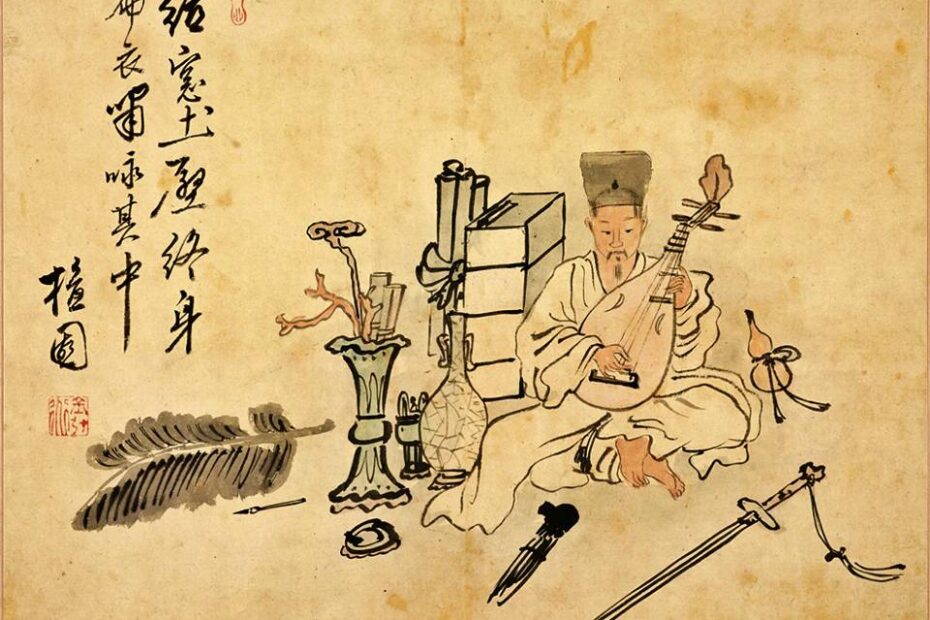 紙窓土壁終身
布衣嘯詠其中
檀園